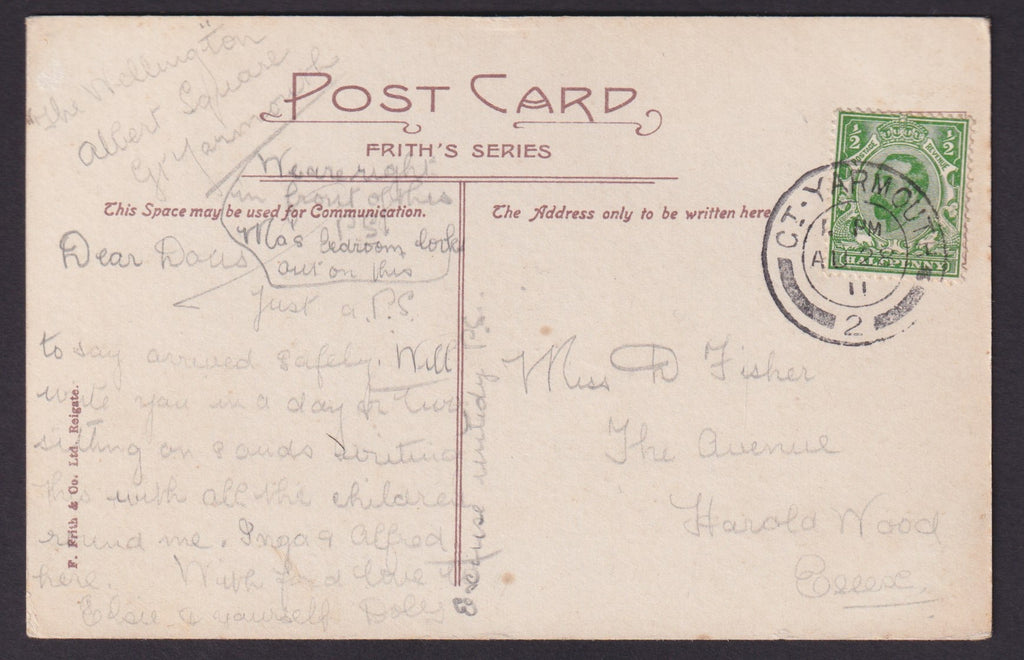 The Wellington
Albert Square
Gt Yarmouth
POST CARD
FRITH'S SERIES
We are right
in front of this
This Space may be used for Communication.
The Address only to be written here
Ma's bedroom looks
out on this
Dear Dolls
Just a P.S.
to say arrived safely. Will
write you in a day or two
sitting on sands writing
this with all the children
round me. Inga & Alfred
here. With fond love to
Elsie & yourself Dolly
Excuse untidy P.C.
F. Frith & Co. Ltd. Reigate.
½ ½
POSTAGE REVENUE
HALFPENNY
GT. YARMOUTH
PM
11
2
Miss D Fisher
The Avenue
Harold Wood
Essex